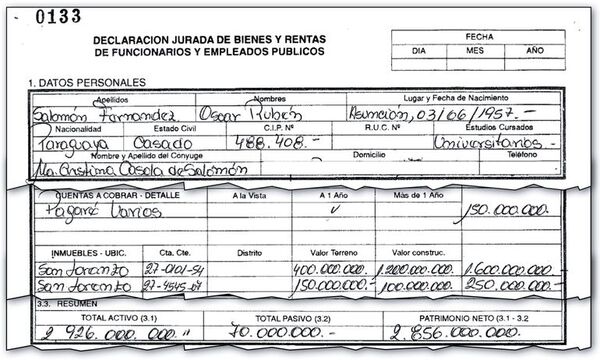 0133
DECLARACION JURADA DE BIENES Y RENTAS
DE FUNCIONARIOS Y EMPLEADOS PUBLICOS
FECHA
DIA MES AÑO
1. DATOS PERSONALES
Apellidos Nombres Lugar y Fecha de Nacimiento
Salomón Fernandez Oscar Rubén Asunción, 03/06/1957.-
Nacionalidad Estado Civil C.I.P. Nº R.U.C. Nº Estudios Cursados
Paraguaya Casado 488.408.- Universitarios -
Nombre y Apellido del Conyuge Domicilio Teléfono
Ma. Cristina Casola de Salomón
CUENTAS A COBRAR - DETALLE A la Vista A 1 Año Más de 1 Año
Pagaré Varios 150.000.000.
INMUEBLES - UBIC. Cta. Cte. Distrito Valor Terreno Valor construc.
San Lorenzo 27-0101-54 400.000.000. 1.200.000.000. 1.600.000.000
San Lorenzo 27-4545-07 150.000.000. 100.000.000. 250.000.000.
3.3. RESUMEN
TOTAL ACTIVO (3.1) TOTAL PASIVO (3.2) PATRIMONIO NETO (3.1 - 3.2
2.926.000.000 " 70.000.000.- 2.856.000.000.-